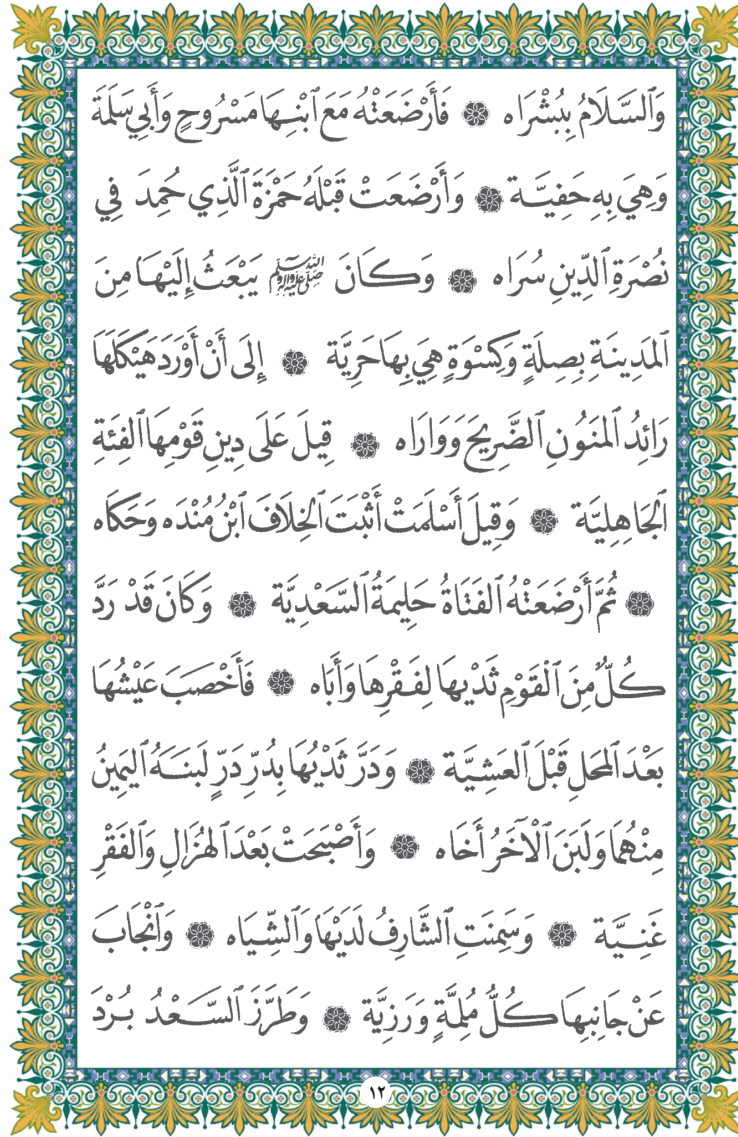 وَٱلسَّلَامُ بِبُشْرَاه ۞ فَأَرْضَعَتْهُ مَعَ ٱبْنِهَا مَسْرُوحٍ وَأَبِي سَلَمَةَ
وَهِيَ بِهِ حَفِيَّة ۞ وَأَرْضَعَتْ قَبْلَهُ حَمْزَةَ ٱلَّذِي حُمِدَ فِي
نُصْرَةِ ٱلدِّينِ سُرَاه ۞ وَكَانَ ﷺ يَبْعَثُ إِلَيْهَا مِنَ
ٱلمَدِينَةِ بِصِلَةٍ وَكِسْوَةٍ هِيَ بِهَا حَرِيَّة ۞ إِلَى أَنْ أَوْرَدَ هَيْكَلَهَا
رَائِدُ ٱلمَنُونِ ٱلضَّرِيحَ وَوَارَاه ۞ قِيلَ عَلَى دِينِ قَوْمِهَا ٱلفِئَةِ
ٱلجَاهِلِيَّة ۞ وَقِيلَ أَسْلَمَتْ أَثْبَتَ ٱلخِلَافَ ٱبْنُ مُنْدَه وَحَكَاه
۞ ثُمَّ أَرْضَعَتْهُ ٱلفَتَاةُ حَلِيمَةُ ٱلسَّعْدِيَّة ۞ وَكَانَ قَدْ رَدَّ
كُلٌّ مِنَ ٱلْقَوْمِ ثَدْيَهَا لِفَقْرِهَا وَأَبَاه ۞ فَأَخْصَبَ عَيْشُهَا
بَعْدَ ٱلمَحَلِ قَبْلَ ٱلعَشِيَّة ۞ وَدَرَّ ثَدْيُهَا بِدُرِّ دَرٍّ لَبَنَهُ ٱليَمِينُ
مِنْهُمَا وَلَبَنَ ٱلْآخَرُ أَخَاه ۞ وَأَصْبَحَتْ بَعْدَ ٱلهُزَالِ وَٱلفَقْرِ
غَنِيَّة ۞ وَسَمِنَتِ ٱلشَّارِفُ لَدَيْهَا وَٱلشِّيَاه ۞ وَٱنْجَابَ
عَنْ جَانِبِهَا كُلُّ مُلِمَّةٍ وَرَزِيَّة ۞ وَطَرَّزَ ٱلسَّعْدُ بُرْدَ
١٢